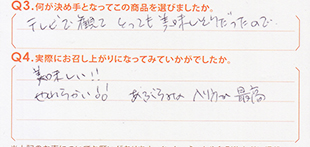 Q3.何が決め手となってこの商品を選びましたか。
テレビで観てとっても美味しそうだったので
Q4.実際にお召し上がりになってみていかがでしたか。
美味しい!!
やわらかい!! あぶらみの 最高